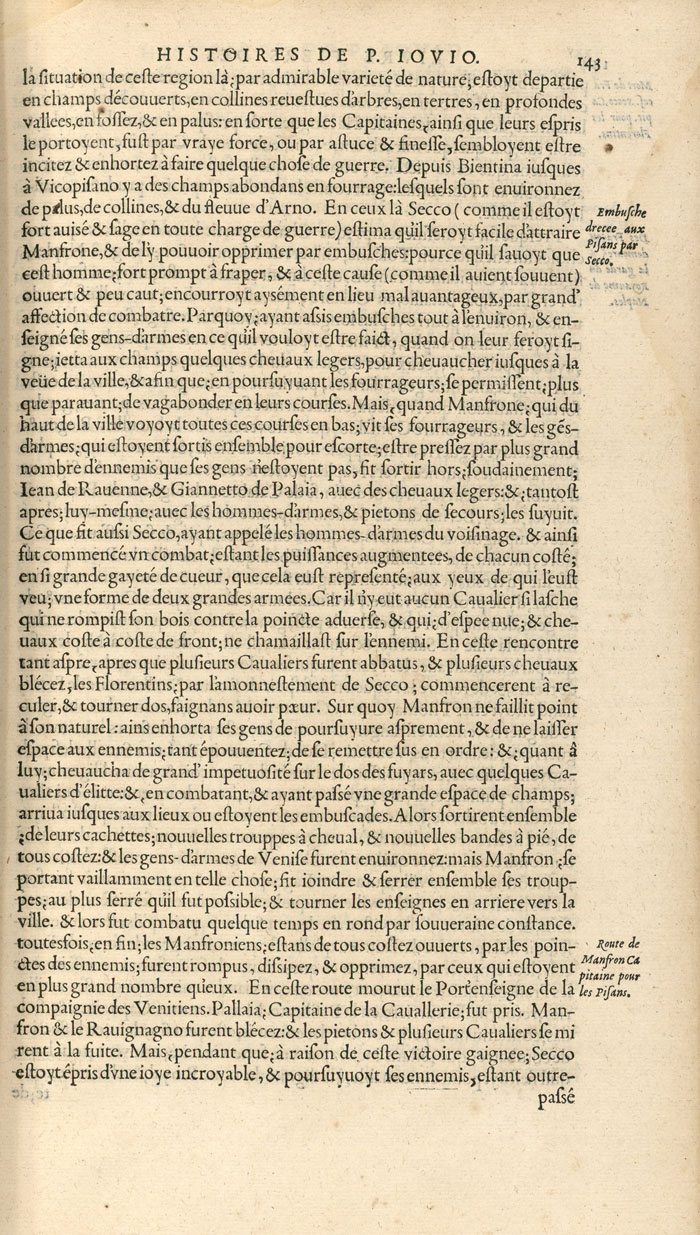 HISTOIRES DE P. IOVIO.
143
la ſituation de ceſte region là; par admirable varieté de nature; eſtoyt departie
en champs découuerts, en collines reueſtues d'arbres, en tertres, en profondes
vallées, en foſſez, & en palus: en ſorte que les Capitaines, ainſi que leurs eſpris
le portoyent, fuſt par vraye force, ou par aſtuce & fineſſe, ſembloyent eſtre
incitez & enhortez à faire quelque choſe de guerre. Depuis Bientina iuſques
à Vicopiſano y a des champs abondans en fourrage: leſquels ſont enuironnez
de palus, de collines, & du fleuue d'Arno. En ceux là Secco ( comme il eſtoyt
fort auiſé & ſage en toute charge de guerre) eſtima qu'il ſeroyt facile d'attraire
Manfrone, & de l'y pouuoir opprimer par embuſches: pource qu'il ſauoyt que
ceſt homme; fort prompt à fraper, & à ceſte cauſe (comme il auient ſouuent)
ouuert & peu caut; encourroyt aysément en lieu malauantageux, par grand'
affection de combatre. Parquoy; ayant aſsis embuſches tout à l'enuiron, & en-
ſeigné ſes gens-d'armes en ce qu'il vouloyt eſtre faict, quand on leur feroyt ſi-
gne; ietta aux champs quelques cheuaux legers, pour cheuaucher iuſques à la
veüe de la ville, & afin que; en pourſuyuant les fourrageurs; ſe permiſſent; plus
que parauant; de vagabonder en leurs courſes. Mais, quand Manfrone; qui du
haut de la ville voyoyt toutes ces courſes en bas; vit ſes fourrageurs, & les gẽs-
d'armes; qui eſtoyent ſortis enſemble pour eſcorte; eſtre preſſez par plus grand
nombre d'ennemis que ſes gens n'eſtoyent pas, fit ſortir hors; ſoudainement;
Iean de Rauenne, & Giannetto de Palaia, auec des cheuaux legers: &; tantoſt
apres; luy-meſme; auec les hommes-d'armes, & pietons de ſecours; les ſuyuit.
Ce que fit auſsi Secco, ayant appelé les hommes-d'armes du voiſinage. & ainſi
fut commencé vn combat; eſtant les puiſſances augmentees, de chacun coſté;
en ſi grande gayeté de cueur, que cela euſt repreſenté; aux yeux de qui l'euſt
veu; vne forme de deux grandes armées. Car il n'y eut aucun Caualier ſi laſche
qui ne rompiſt ſon bois contre la poincte aduerſe, & qui; d'eſpee nue; & che-
uaux coſte à coſte de front; ne chamaillaſt ſur l'ennemi. En ceſte rencontre
tant aſpre, apres que pluſieurs Caualiers furent abbatus, & pluſieurs cheuaux
blécez, les Florentins; par l'amonneſtement de Secco; commencerent à re-
culer, & tourner dos, faignans auoir pœur. Sur quoy Manfron ne faillit point
à ſon naturel: ains enhorta ſes gens de pourſuyure aſprement, & de ne laiſſer
eſpace aux ennemis; tant épouuentez; de ſe remettre ſus en ordre: &; quant à
luy; cheuaucha de grand' impetuoſité ſur le dos des fuyars, auec quelques Ca-
ualiers d'élitte: &, en combatant, & ayant paſsé vne grande eſpace de champs;
arriua iuſques aux lieux ou eſtoyent les embuſcades. Alors ſortirent enſemble
; de leurs cachettes; nouuelles trouppes à cheual, & nouuelles bandes à pié, de
tous coſtez: & les gens-d'armes de Veniſe furent enuironnez: mais Manfron; ſe
portant vaillamment en telle choſe; fit ioindre & ſerrer enſemble ſes troup-
pes; au plus ſerré qu'il fut poſsible; & tourner les enſeignes en arriere vers la
ville. & lors fut combatu quelque temps en rond par ſouueraine conſtance.
toutesfois, en fin; les Manfroniens; eſtans de tous coſtez ouuerts, par les poin-
ctes des ennemis; furent rompus, diſsipez, & opprimez, par ceux qui eſtoyent
en plus grand nombre qu'eux. En ceſte route mourut le Port'enſeigne de la
compaignie des Venitiens. Pallaia; Capitaine de la Cauallerie; fut pris. Man-
fron & le Rauignagno furent blécez: & les pietons & pluſieurs Caualiers ſe mi
rent à la fuite. Mais, pendant que; à raiſon de ceſte victoire gaignee; Secco
eſtoyt épris d'vne ioye incroyable, & pourſuyuoyt ſes ennemis, eſtant outre-
paſsé
Embuſche
drecee aux
Piſans par
Secco.
Route de
Manfron Ca
pitaine pour
les Piſans.